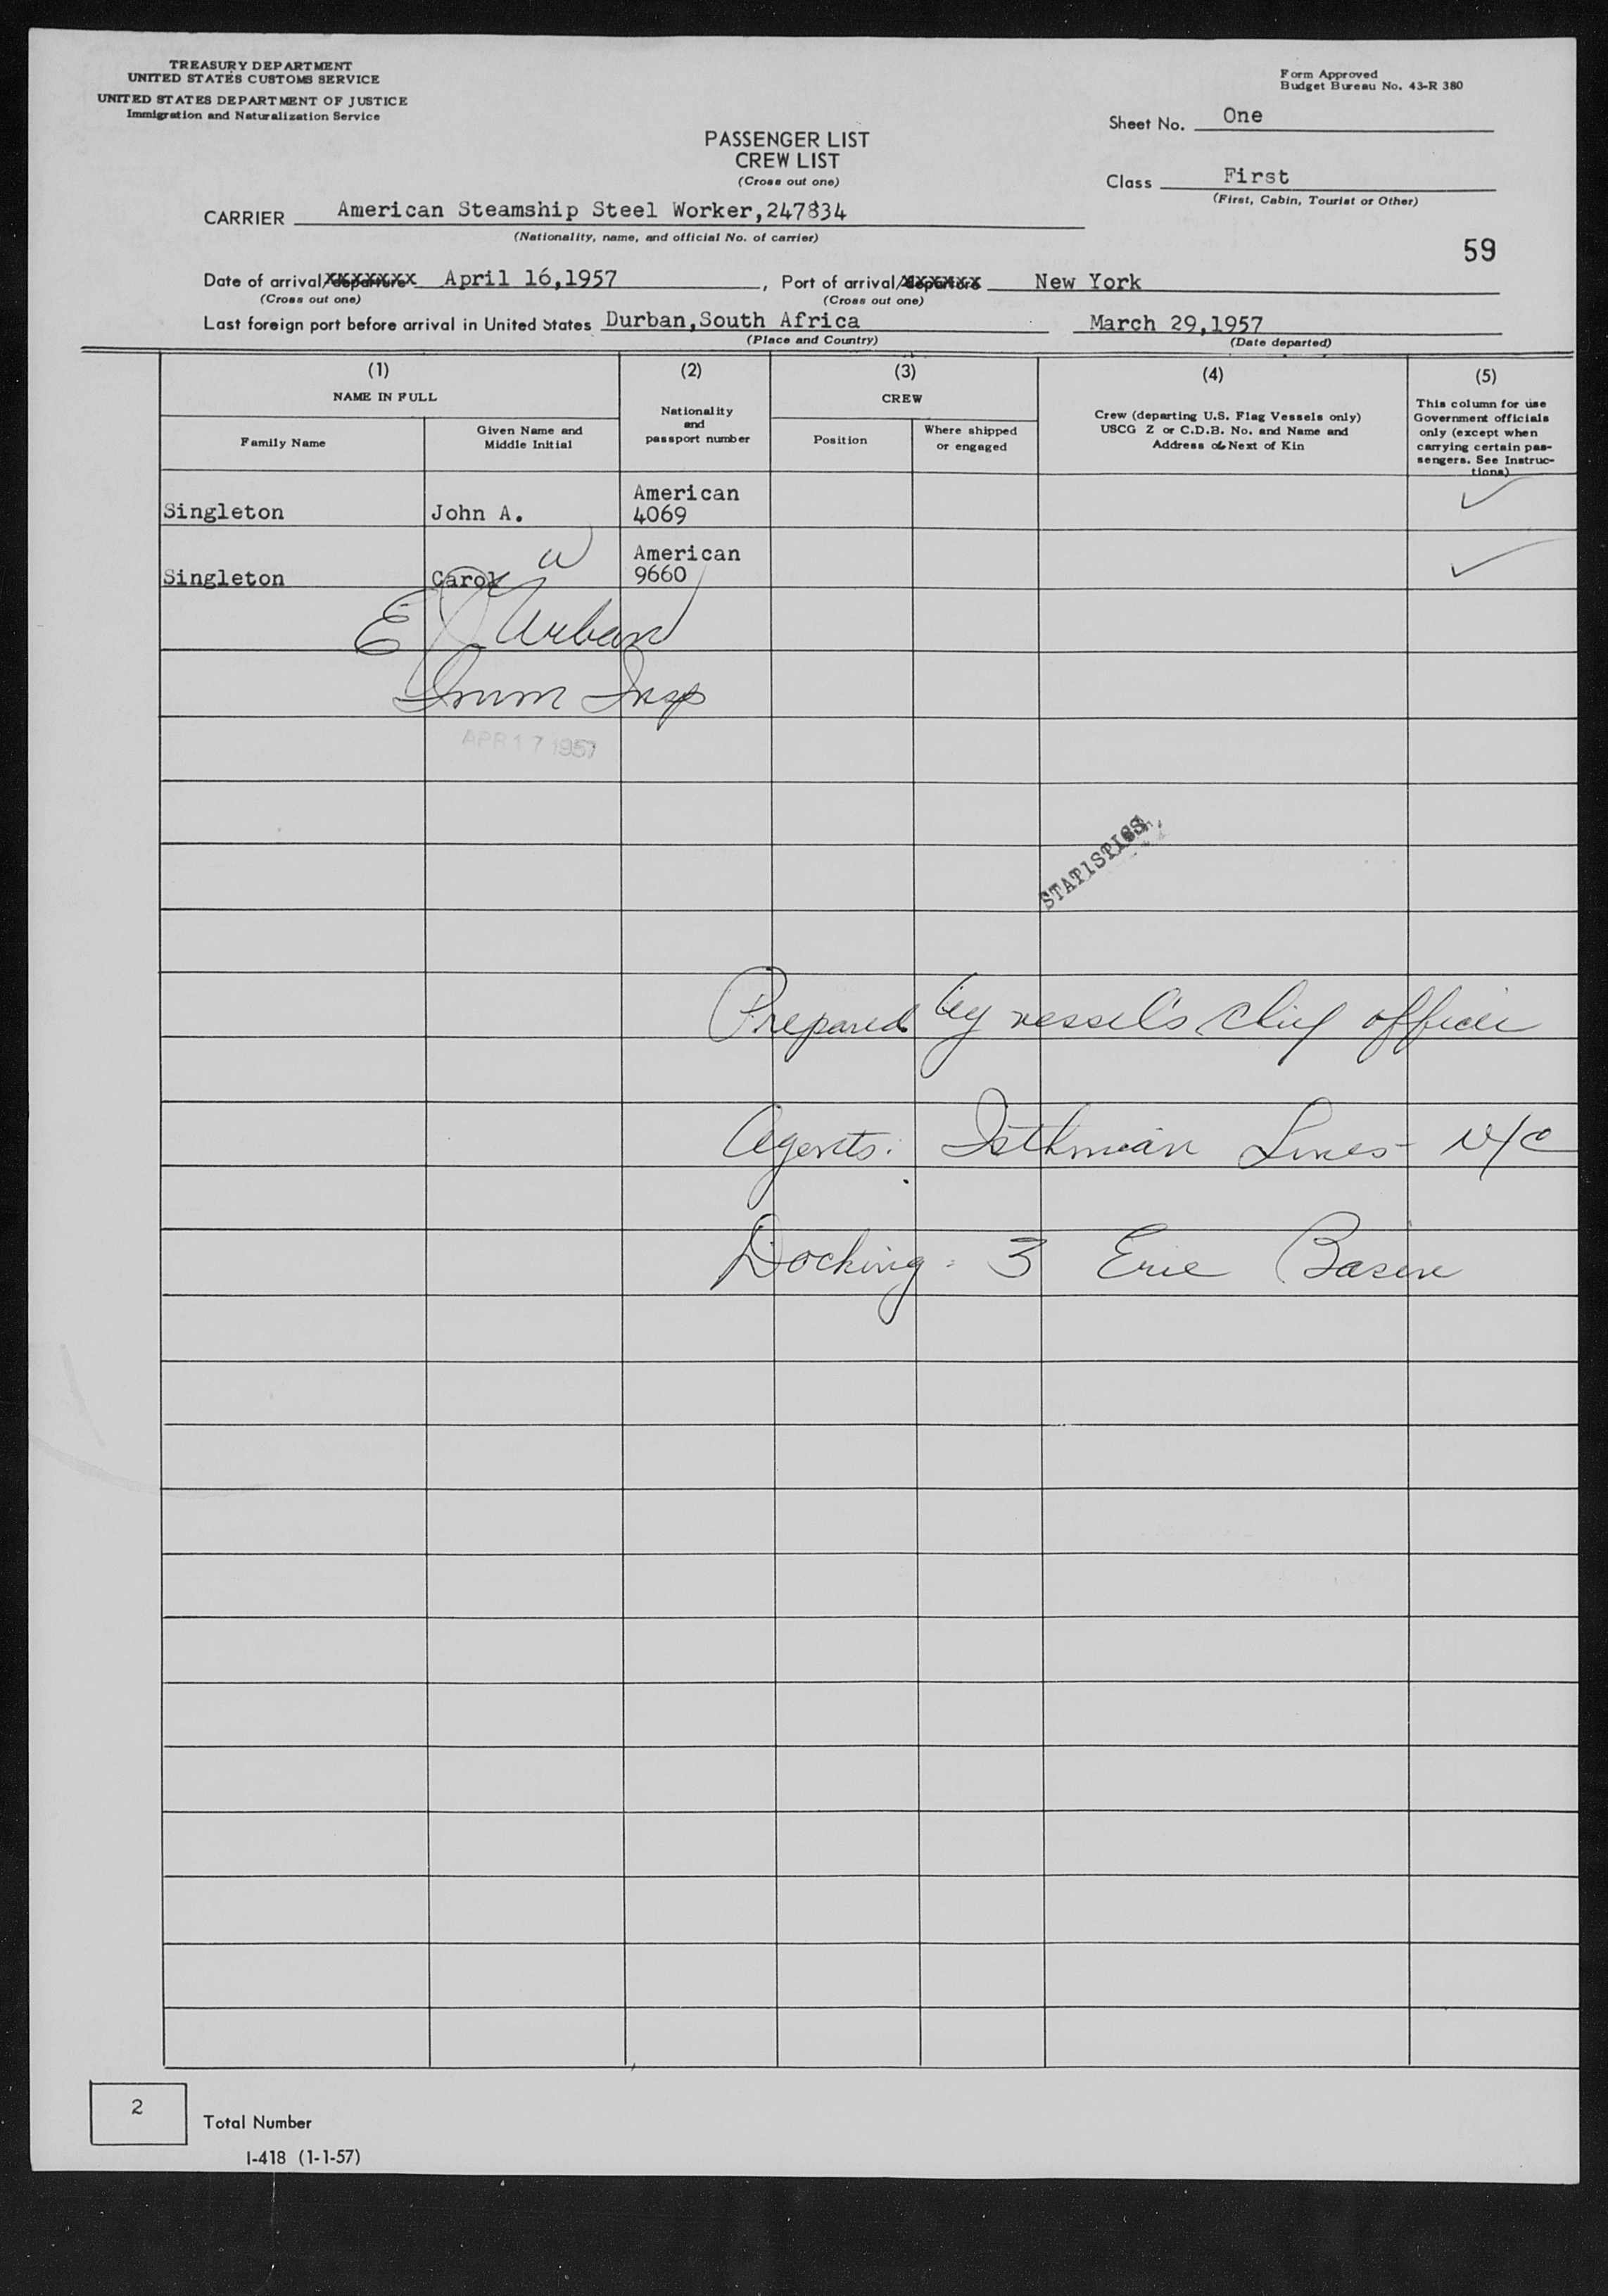 TREASURY DEPARTMENT
UNITED STATES CUSTOMS SERVICE
UNITED STATES DEPARTMENT OF JUSTICE
Immigration and Naturalization Service
Form Approved
Budget Bureau No. 43-R 380
Sheet No. One
PASSENGER LIST
CREW LIST
(Cross out one)
Class First
(First, Cabin, Tourist or Other)
CARRIER American Steamship Steel Worker,247834
(Nationality, name, and official No. of carrier)
59
Date of arrival/departure April 16,1957, Port of arrival/departure New York
(Cross out one) (Cross out one)
Last foreign port before arrival in United States Durban,South Africa March 29,1957
(Place and Country) (Date departed)
(1) (2) (3) (4) (5)
NAME IN FULL
Family Name
Given Name and
Middle Initial
Nationality
and
passport number
CREW
Position
Where shipped
or engaged
Crew (departing U.S. Flag Vessels only)
USCG Z or C.D.B. No. and Name and
Address of Next of Kin
This column for use
Government officials
only (except when
carrying certain pas-
sengers. See Instruc-
tions)
Singleton John A. American 4069 ✓
Singleton Carol W American 9660 ✓
E J Urban
Imm Insp
APR 17 1957
STATISTICS
Prepared by vessel's chief officer
Agents: Isthmian Lines - N/C
Docking - 3 Erie Basin
2
Total Number
I-418 (1-1-57)